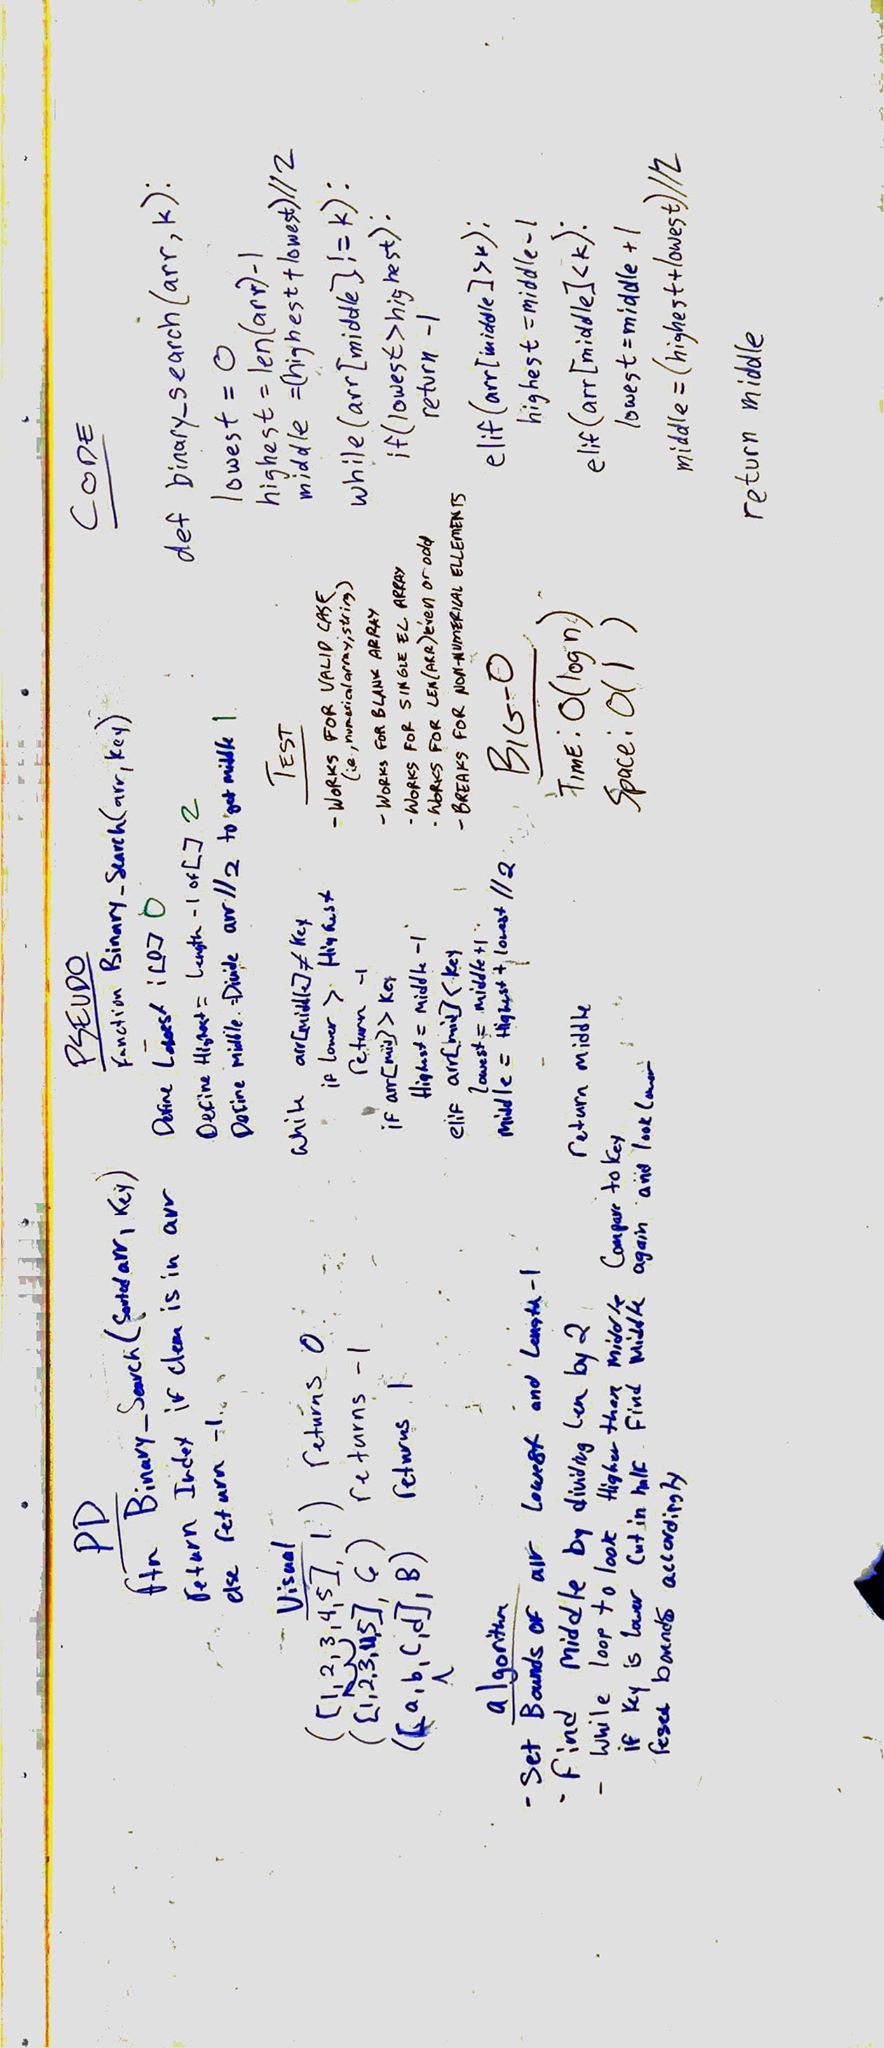 PD
ftn Binary_Search(Sorted arr, Key)
return Index if elem is in arr
else return -1
Visual
([1,2,3,4,5], 1) returns 0
([1,2,3,4,5], 6) returns -1
([a,b,c,d], B) returns 1
algorithm
- Set Bounds of arr Lowest and Length-1
- Find Middle by dividing Len by 2
- While loop to look Higher than Middle Compare to key
if key is lower Cut in half. Find Middle again and look lower
reset bounds accordingly
PSEUDO
Function Binary_Search(arr, key)
Define Lowest 0
Define Highest = Length -1 of [] 2
Define Middle = Divide arr//2 to get middle 1
while arr[middle] ≠ Key
if lower > Highest
return -1
if arr[mid] > Key
Highest = Middle -1
elif arr[mid] < key
Lowest = middle +1
middle = Highest + lowest //2
return middle
TEST
- WORKS FOR VALID CASE
(i.e., numerical array, string)
- WORKS FOR BLANK ARRAY
- WORKS FOR SINGLE EL ARRAY
- WORKS FOR LEN(ARR) even or odd
- BREAKS FOR NON-NUMERICAL ELLEMENTS
BIG-O
TIME: O(log n)
Space: O(1)
CODE
def binary_search(arr, k):
lowest = 0
highest = len(arr)-1
middle = (highest+lowest)//2
while(arr[middle] != k):
if(lowest>highest):
return -1
elif(arr[middle]>k):
highest = middle-1
elif(arr[middle]<k):
lowest=middle+1
middle=(highest+lowest)//2
return middle